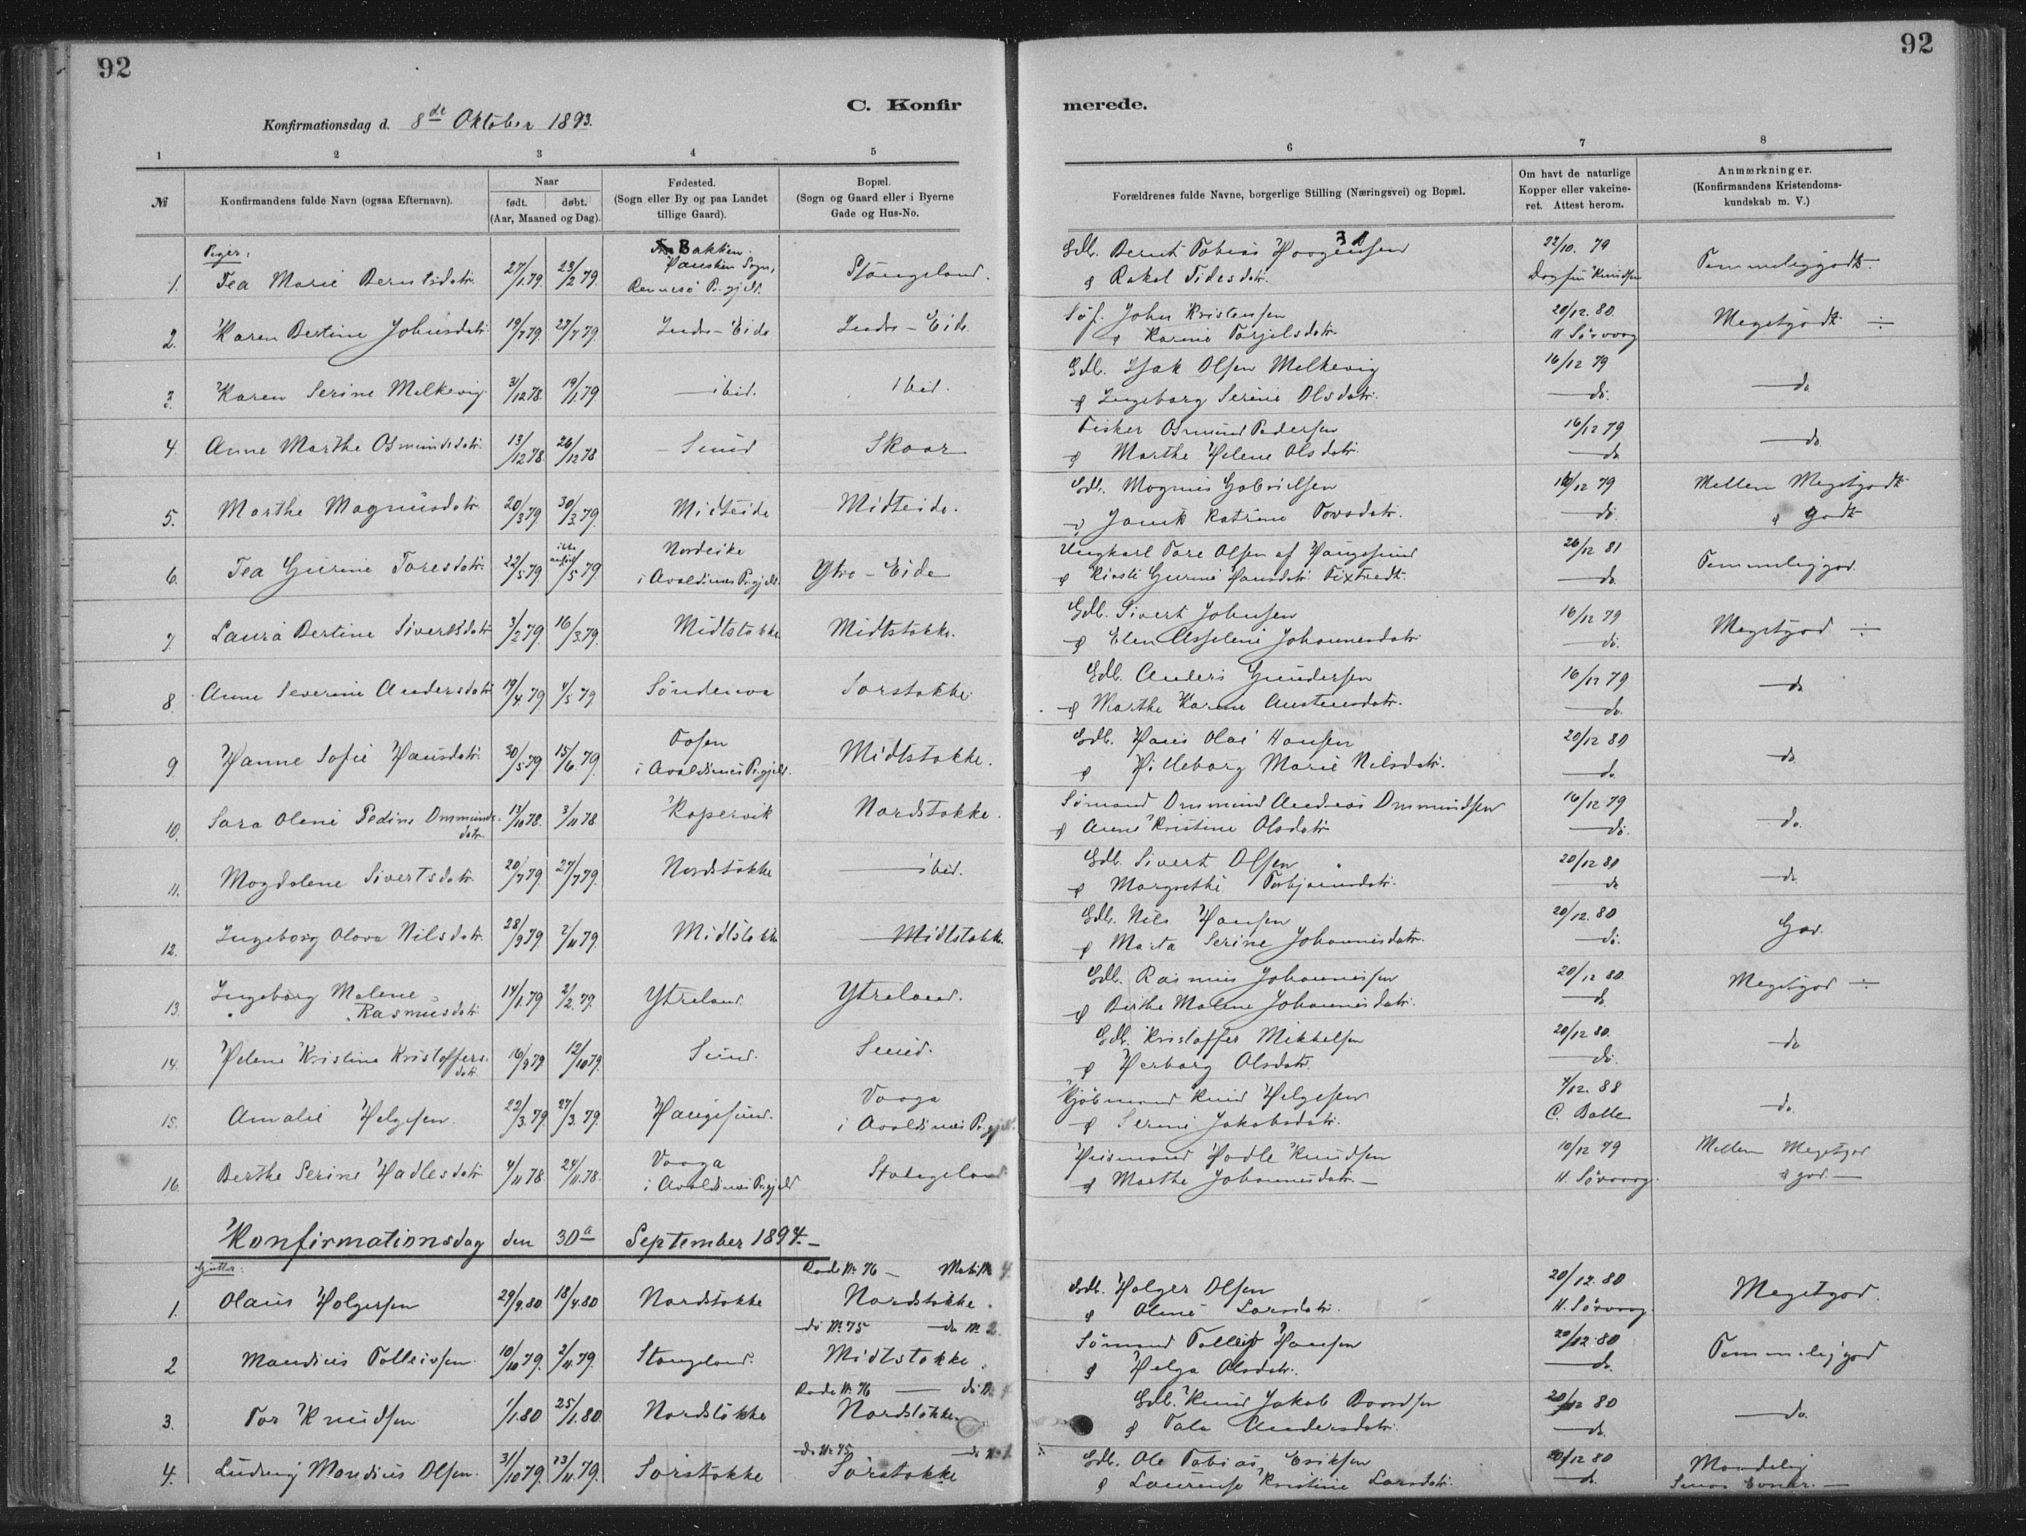 92
92
C. Konfir
merede.
Konfirmationsdag d. 8de Oktober 1893.
1 2 3 4 5 6 7 8
№ Konfirmandens fulde Navn (ogsaa Efternavn).
Naar
født. døbt.
(Aar, Maaned og Dag).
Fødested.
(Sogn eller By og paa Landet
tillige Gaard).
Bopæl.
(Sogn og Gaard eller i Byerne
Gade og Hus-No.
Forældrenes fulde Navne, borgerlige Stilling (Næringsvei) og Bopæl.
Om havt de naturlige
Kopper eller vakcine-
ret. Attest herom.
Anmærkninger.
(Konfirmandens Kristendoms-
kundskab m. V.)
Piger:
Bakken
Sogn,
Rennesø Prgjeld.
1. Tea Marie Berntsdatr. 27/1.79 23/2 79. Stangeland. Gdb. Bernt Tobias 22/10. 79 Temmeliggodt.
& Rakel Tidesdatr. Knudsen
2. Karen Bertine Johnsdatr. 19/7.79 27/7 79. Indre-Eide Indre-Eide John Kristensen 20/12.80. Megetgodt ÷
& Karine Torjelsdatr. H. Sørvaag
3. Karen Serine Melkevig 31/12 78. 19/1.79 ibid. ibid. Gdb. Isak Olsen Melkevig 16/12 79 do
& Ingeborg Serine Olsdatr. do.
4. Anne Marthe Osmundsdatr. 13/12 78. 26/12 78 Sund Skaar Fisker Osmund Pedersen 16/12 79 do
& Marthe Helene Olsdatr. do
5. Marthe Magnusdatr. 20/3 79 30/3.79. Midteide Midteide. Gdb. Magnus Gabrielsen 16/12 79 Mellem Megetgodt
& Katrine do. & godt
6. Tea Gurine Toresdatr. 22/5 79 /5 79. i Avaldsnes Prgjeld. Ytre-Eide Ungkarl Tore Olsen af Haugesund 26/12 81 Temmeliggod.
& Kirsti Gurine Hansdatr. do
7. Laura Bertine Sivertsdatr. 3/2 79. 16/3.79. Midtstokke Midtstokke. Gdb. Sivert Johnsen 16/12 79 Megetgod ÷
& Elen Johannesdatr. do.
8. Anne Severine Andersdatr. 19/4.79 4/5 79 Søndenaa Sørstokke. Gdb. Anders Gundersen 16/12 79 do
& Marthe Karine Austensdatr. do.
9 Hanne Sofie Hansdatr. 30/5 79 15/6.79. Fosen
i Avaldsnes Prgjeld. Midtstokke. Gdb. Hans Olai Hansen 20/12 80 do.
& Hilleborg Marie Nilsdatr. do
10. Sara Olene Pedine Ommunds-
datr. 13/10 78. 3/11 78 Kopervik Nordstokke. Sømand Ommund Andreas Ommundsen 16/12 79 do.
& Anne Kristine Olsdatr. do.
11. Magdalene Sivertsdatr. 20/7 79 27/7 79. Nordstokke ibid. Gdb. Sivert Olsen 20/12 80 do.
& Margrethe Torbjørnsdatr. do
12. Ingeborg Olava Nilsdatr. 28/9 79 2/11 79. Midtstokke Midtstokke. Gdb. Nils Hansen 20/12.80 God.
& Marta Serine Johannesdatr. do.
13. Ingeborg Malene
Rasmusdatr. 14/1.79 2/2.79. Ytreland Ytreland. Gdb. Rasmus Johannesen 20/12 80. Megetgod ÷
& Berthe Malene Johannesdatr. do.
14. Helene Kristine Kristoffers-
datr. 16/9 79. 12/10 79. Sund. Sund. Gdb. Kristoffer Mikkelsen 20/12 80. do
& Herborg Olsdatr. do.
15. Amalie Helgesen. 22/3.79. 27/3.79. Haugesund. Vaaga
i Avaldsnes Prgjeld. Kjøbmand Knud Helgesen 4/12. 88 do.
& Serine Jakobsdatr. C. Balle
16. Berthe Serine Hadlesdatr. 4/11 78. 24/11.78. Vaaga
i Avaldsnes Prgjeld Stangeland Husmand Hadle Knudsen 10/12 79 Mellem Megetgod
& Marthe Johannesdatr. H. Sørvaag. & god.
Konfirmationsdag den 30te September 1894.
Gutter:
Rode № 76 Matr № 4.
1. Olaus Holgersen 29/2.80. 18/4.80 Nordstokke Nordstokke. Gdb. Holger Olsen 20/12.80 Megetgod.
& Olene Larsdatr. H. Sørvaag.
do № 75 do № 2.
2 Mandius Tolleivsen. 10/10 79. 2/11.79. Stangeland. Midtstokke. Sømand Tolleif Hansen 20/12.80 Temmeliggod
& Helga Olsdatr. do.
Rode № 76 do №
3. Tor Knudsen 1/1.80 25/1.80. Nordstokke Nordstokke. Gdb. Knud Jakob Baardsen 20/12 80 do.
& Tala Andersdatr. do.
do № 75 do № 1.
4. Ludvig Mandius Olsen. 31/10 79. 23/11.79. Sørstokke Sørstokke Gdb. Ole Tobias Eriksen 20/12 80
& Laurense Kristine Larsdatr. do.